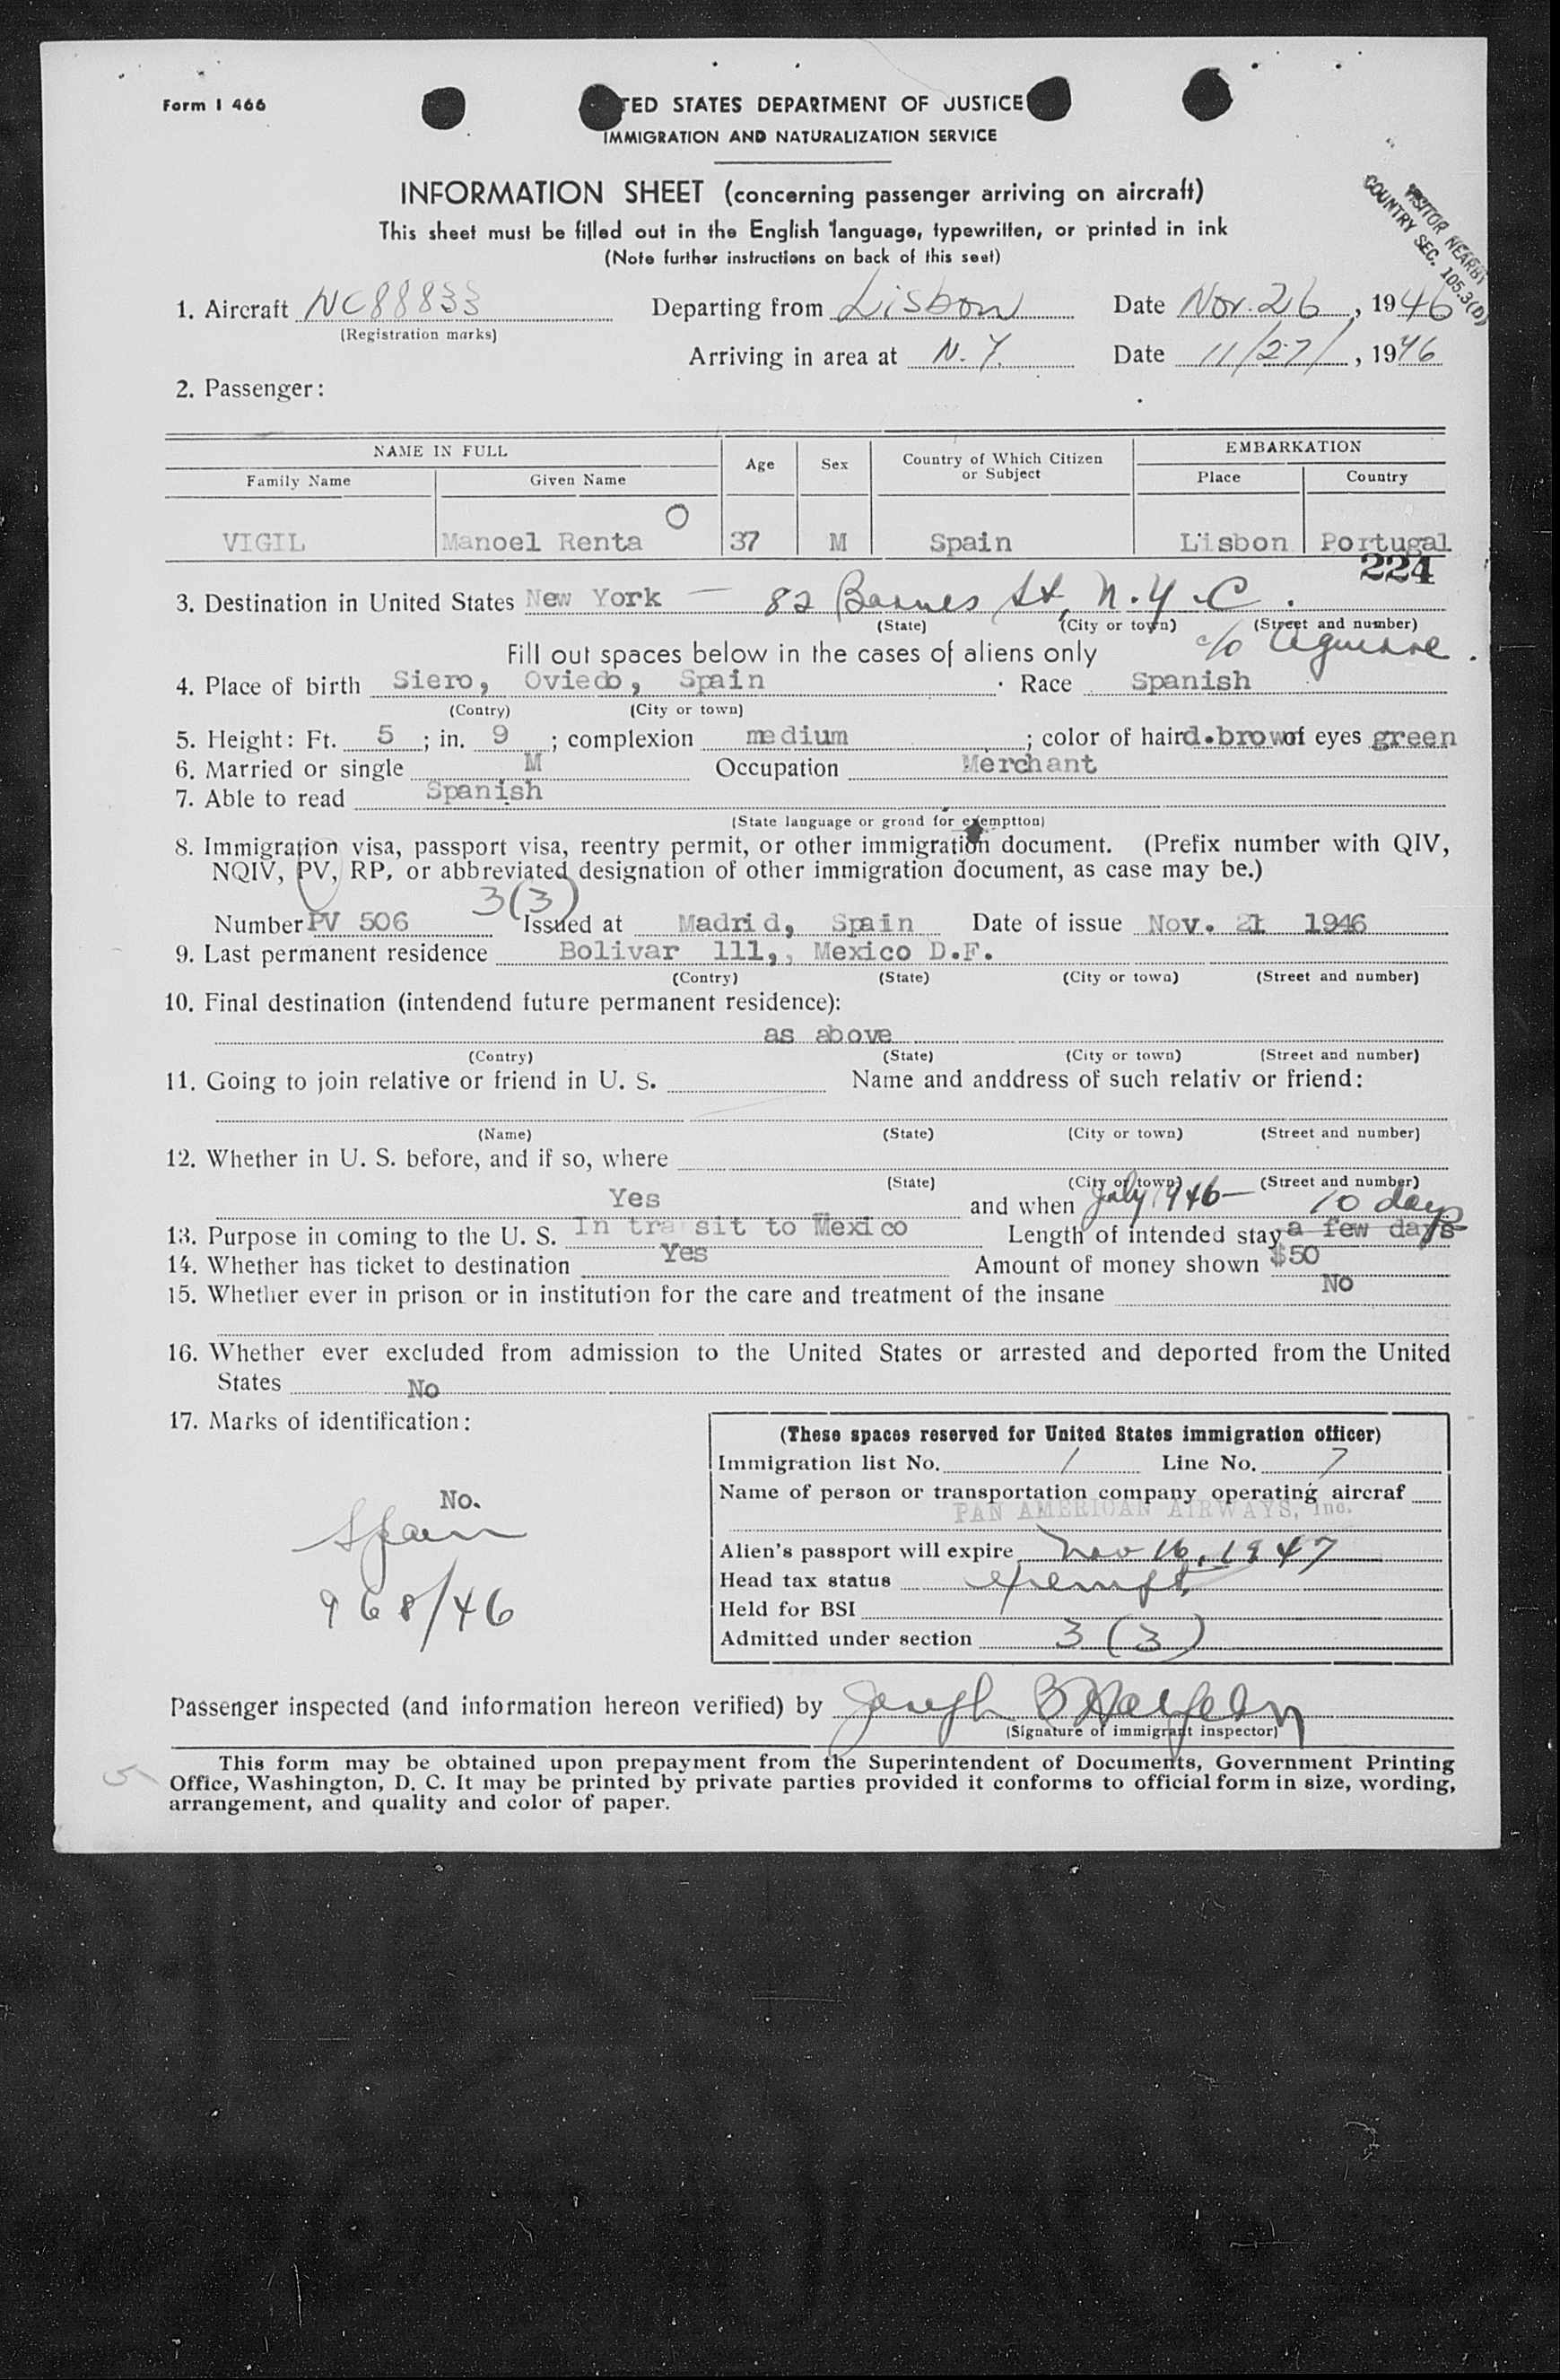 Form I 466
TED STATES DEPARTMENT OF JUSTICE
IMMIGRATION AND NATURALIZATION SERVICE
INFORMATION SHEET (concerning passenger arriving on aircraft)
This sheet must be filled out in the English language, typewritten, or printed in ink
(Note further instructions on back of this seet)
VISITOR NEARBY
COUNTRY SEC. 105.3(D)
1. Aircraft NC88833 Departing from Lisbon Date Nov. 26, 1946
(Registration marks)
Arriving in area at N.Y. Date 11/27/, 1946
2. Passenger:
NAME IN FULL Age Sex Country of Which Citizen or Subject EMBARKATION
Family Name Given Name Place Country
O
VIGIL Manoel Renta 37 M Spain Lisbon Portugal
224
3. Destination in United States New York — 82 Barnes St, N.Y.C.
(State) (City or town) (Street and number)
Fill out spaces below in the cases of aliens only c/o Aguirre.
4. Place of birth Siero, Oviedo, Spain Race Spanish
(Contry) (City or town)
5. Height: Ft. 5; in. 9; complexion medium; color of hair d.brown of eyes green
6. Married or single M Occupation Merchant
7. Able to read Spanish
(State language or groud for exemptton)
8. Immigration visa, passport visa, reentry permit, or other immigration document. (Prefix number with QIV,
NQIV, PV, RP, or abbreviated designation of other immigration document, as case may be.)
3(3)
Number PV 506 Issued at Madrid, Spain Date of issue Nov. 21 1946
9. Last permanent residence Bolivar 111,, Mexico D.F.
(Contry) (State) (City or town) (Street and number)
10. Final destination (intendend future permanent residence):
as above
(Contry) (State) (City or town) (Street and number)
11. Going to join relative or friend in U. S. Name and anddress of such relativ or friend:
(Name) (State) (City or town) (Street and number)
12. Whether in U. S. before, and if so, where
(State) (City or town) (Street and number)
Yes and when July 1946— 10 days
13. Purpose in coming to the U. S. In transit to Mexico Length of intended stay a few days
14. Whether has ticket to destination Yes Amount of money shown $50
15. Whether ever in prison or in institution for the care and treatment of the insane No
16. Whether ever excluded from admission to the United States or arrested and deported from the United
States No
17. Marks of identification:
No.
Spain
968/46
(These spaces reserved for United States immigration officer)
Immigration list No. 1 Line No. 7
Name of person or transportation company operating aircraf
PAN AMERICAN AIRWAYS, Inc.
Alien's passport will expire Nov 16, 1947
Head tax status exempt
Held for BSI
Admitted under section 3(3)
Passenger inspected (and information hereon verified) by Joseph B
(Signature of immigrant inspector)
This form may be obtained upon prepayment from the Superintendent of Documents, Government Printing
Office, Washington, D. C. It may be printed by private parties provided it conforms to official form in size, wording,
arrangement, and quality and color of paper.